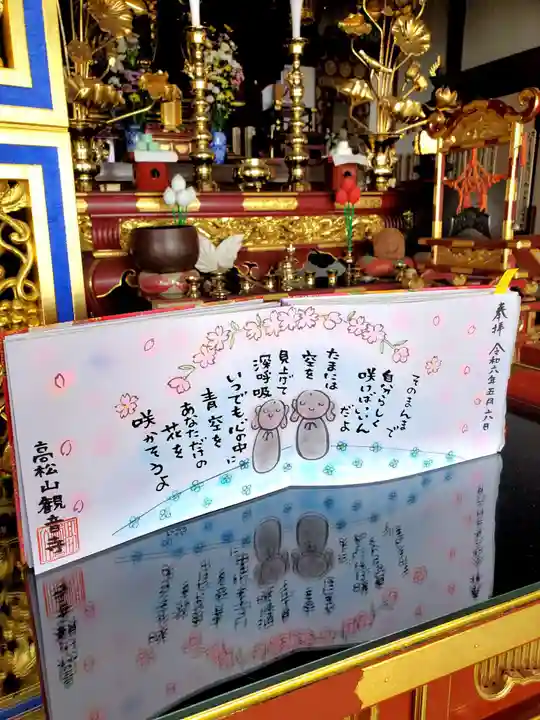 奉拝 令和六年五月六日
そのまんまで
自分らしく
咲けばいいんだよ
たまには
空を
見上げて
深呼吸
いつでも心の中に
青空を
あなただけの
花を
咲かそうよ
高松山観音寺